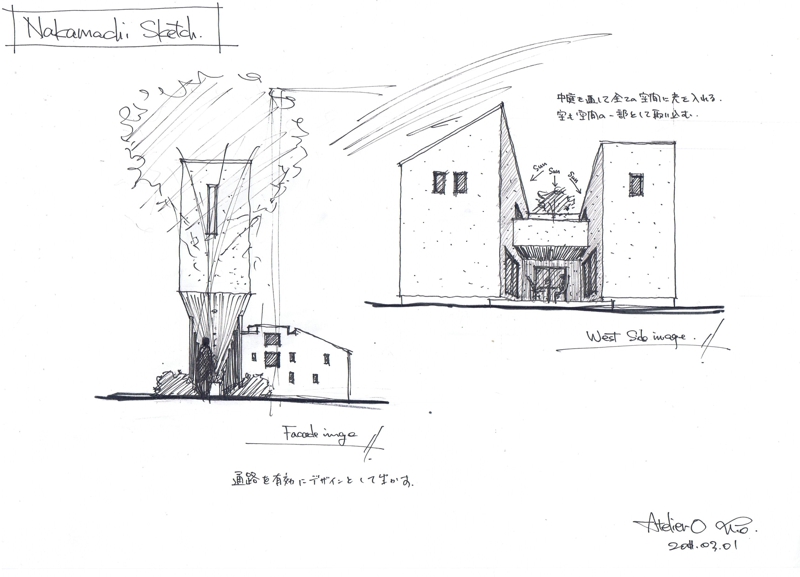 Nakamachi Sketch.
中庭を通して全ての空間に光を入れる.
空も空間の一部として取り込む..
Sun
Sun
Sun
West Side image.
Facade image
通路を有効にデザインとして生かす.
Atelier O
2011.03.01